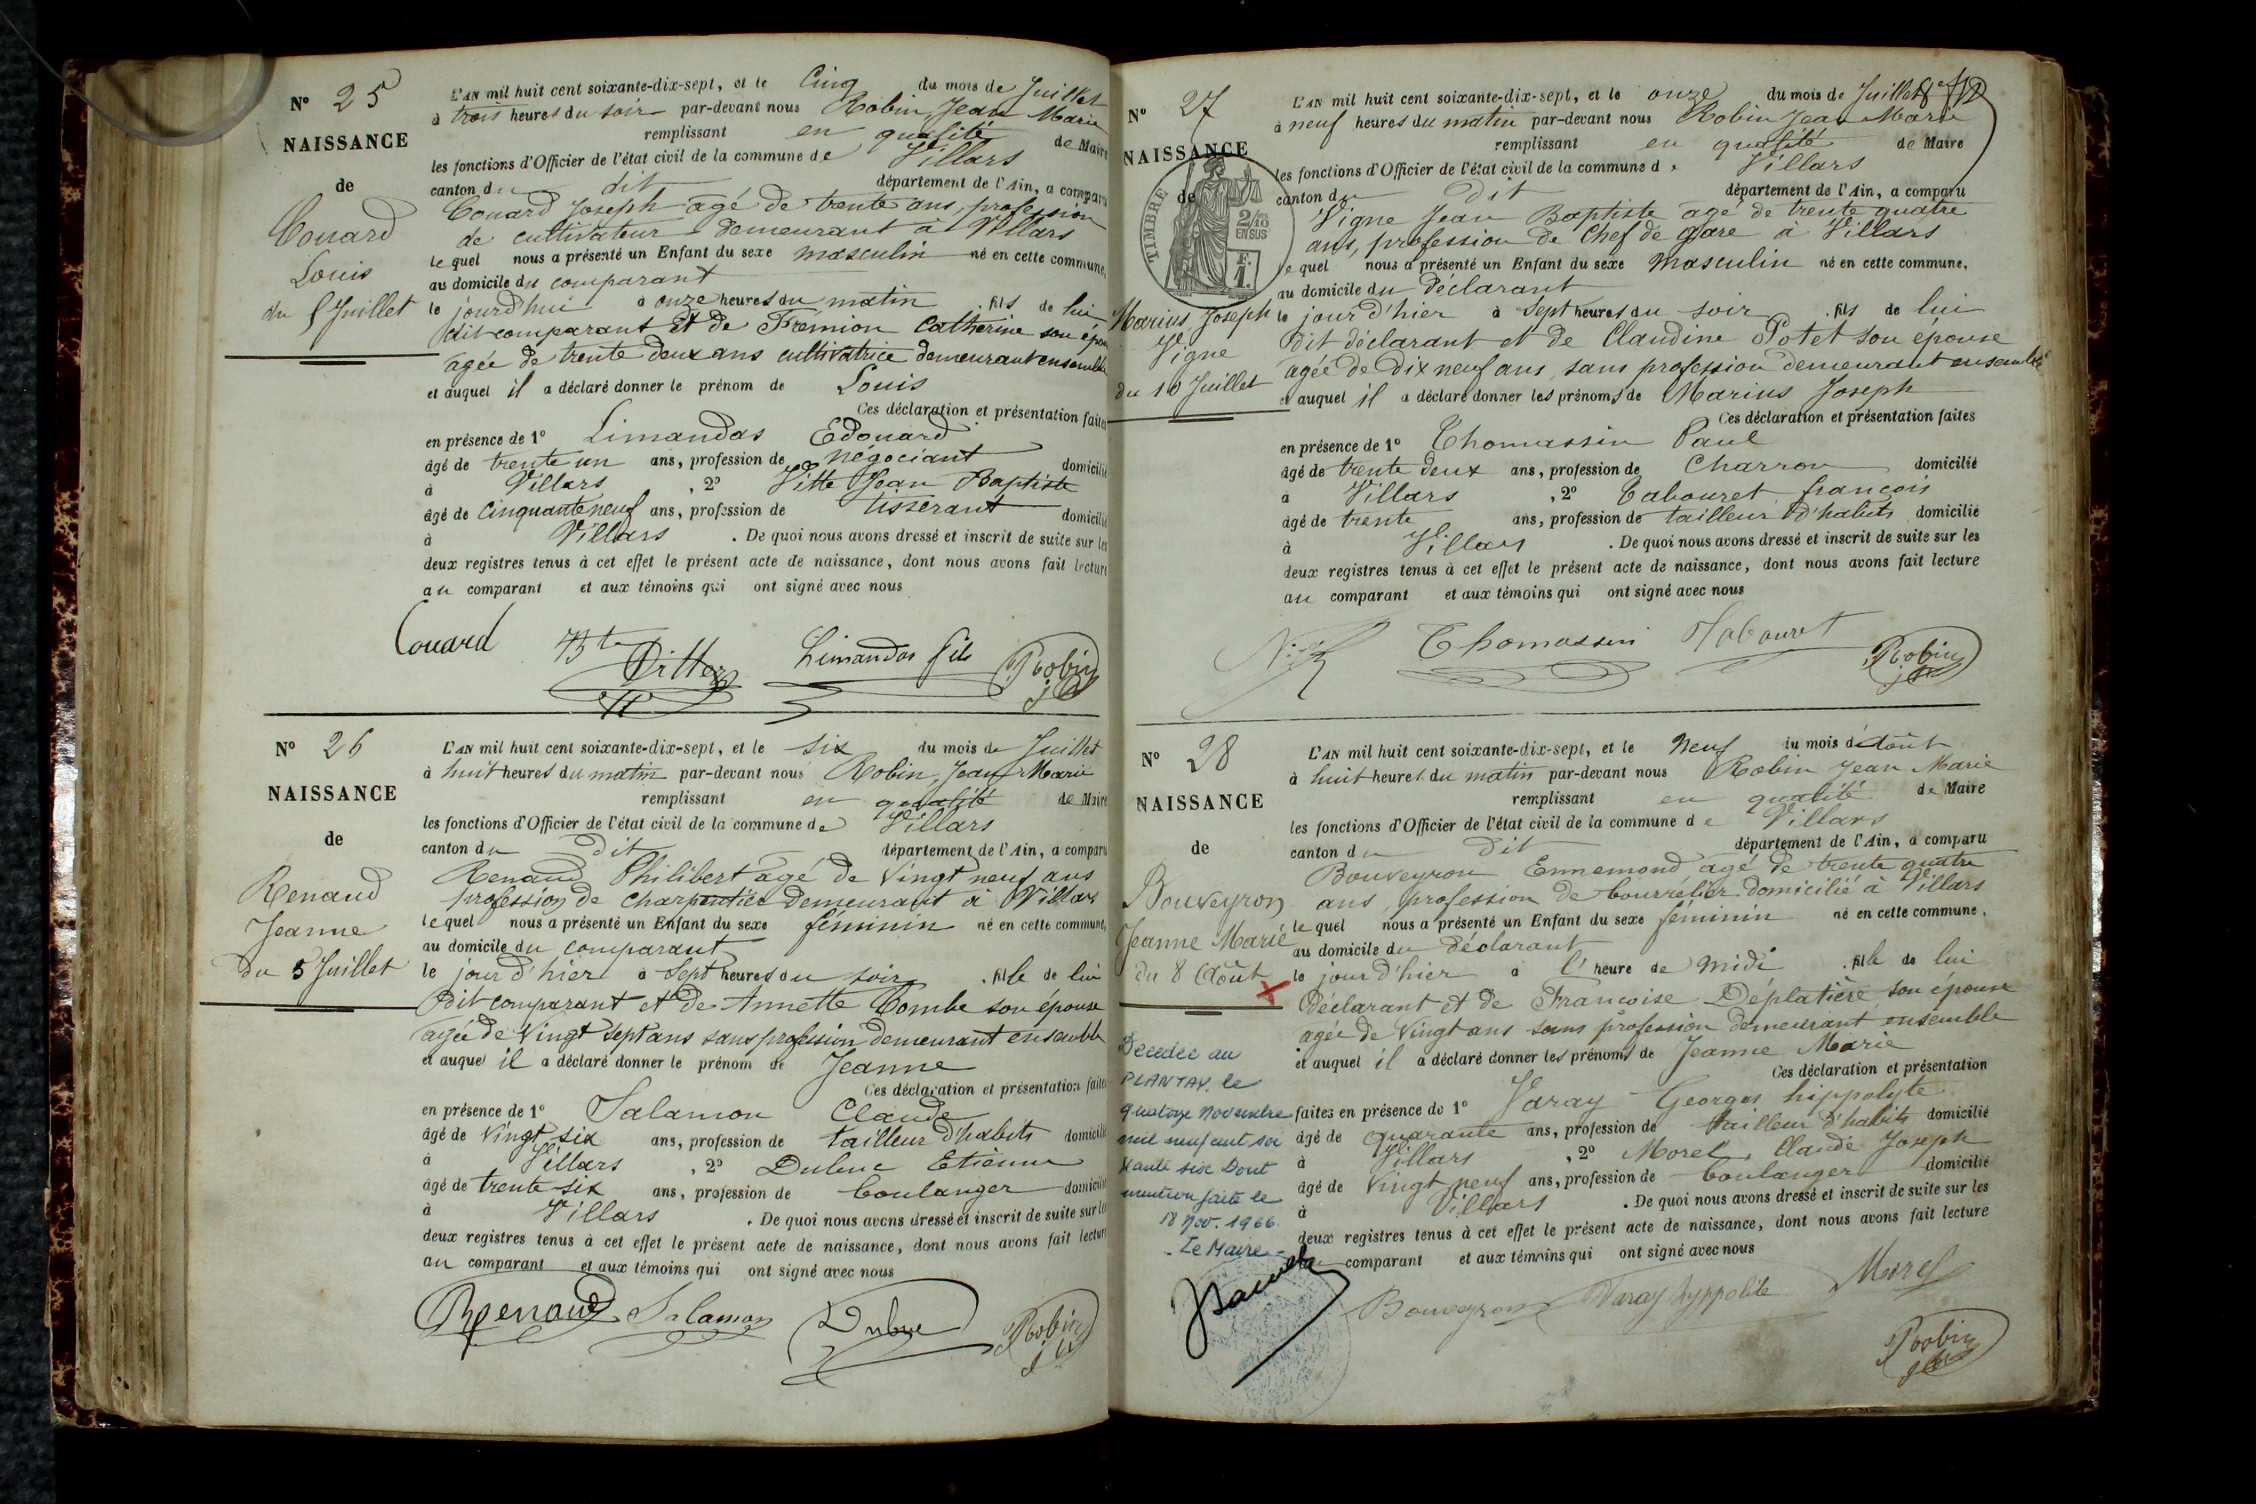 N° 25
NAISSANCE
de
Couard
Louis
du 5 Juillet
L'AN mil huit cent soixante-dix-sept, et le Cinq du mois de Juillet
à trois heures du soir par-devant nous Robin Jean Marie
remplissant en qualité de Maire
les fonctions d'Officier de l'état civil de la commune de Villars
canton du dit département de l'Ain, a comparu
Couard Joseph agé de trente ans, profession
de cultivateur demeurant à Villars
lequel nous a présenté un Enfant du sexe masculin né en cette commune,
au domicile du comparant
le jourd'hui à onze heures du matin, fils de lui
dit comparant et de Frémion Catherine son épouse
agée de trente deux ans cultivatrice demeurant ensemble
et auquel il a déclaré donner le prénom de Louis
Ces déclaration et présentation faites
en présence de 1° Limandas Edouard
âgé de trente un ans, profession de négociant domicilié
à Villars, 2° Vitte Jean Baptiste
âgé de cinquante neuf ans, profession de tisserant domicilié
à Villars. De quoi nous avons dressé et inscrit de suite sur les
deux registres tenus à cet effet le présent acte de naissance, dont nous avons fait lecture
au comparant et aux témoins qui ont signé avec nous
Couard Bte Vitte Limandas fils Robin
N° 26
NAISSANCE
de
Renaud
Jeanne
du 5 Juillet
L'AN mil huit cent soixante-dix-sept, et le six du mois de Juillet
à huit heures du matin par-devant nous Robin Jean Marie
remplissant en qualité de Maire
les fonctions d'Officier de l'état civil de la commune de Villars
canton du dit département de l'Ain, a comparu
Renaud Philibert agé de vingt neuf ans
profession de charpentier demeurant à Villars
lequel nous a présenté un Enfant du sexe féminin né en cette commune,
au domicile du comparant
le jour d'hier à sept heures du soir, fille de lui
dit comparant et de Annette Combe son épouse
agée de vingt sept ans sans profession demeurant ensemble
et auquel il a déclaré donner le prénom de Jeanne
Ces déclaration et présentation faites
en présence de 1° Salamon Claude
âgé de vingt six ans, profession de tailleur d'habits domicilié
à Villars, 2° Dubuc Etienne
âgé de trente six ans, profession de boulanger domicilié
à Villars. De quoi nous avons dressé et inscrit de suite sur les
deux registres tenus à cet effet le présent acte de naissance, dont nous avons fait lecture
au comparant et aux témoins qui ont signé avec nous
Renaud Salamon Dubuc Robin
N° 27
NAISSANCE
de
TIMBRE
2/10
EN SUS
F.
1.
Marius Joseph
Vigne
du 10 Juillet
L'AN mil huit cent soixante-dix-sept, et le onze du mois de Juillet
à neuf heures du matin par-devant nous Robin Jean Marie
remplissant en qualité de Maire
les fonctions d'Officier de l'état civil de la commune d Villars
canton du dit département de l'Ain, a comparu
Vigne Jean Baptiste agé de trente quatre
ans, profession de Chef de gare à Villars
lequel nous a présenté un Enfant du sexe masculin né en cette commune,
au domicile du déclarant
le jour d'hier à sept heures du soir, fils de lui
dit déclarant et de Claudine Potet son épouse
agée de dix neuf ans, sans profession demeurant ensemble
et auquel il a déclaré donner les prénoms de Marius Joseph
Ces déclaration et présentation faites
en présence de 1° Thomassin Paul
âgé de trente deux ans, profession de Charron domicilié
à Villars, 2° Tabouret françois
âgé de trente ans, profession de tailleur d'habits domicilié
à Villars. De quoi nous avons dressé et inscrit de suite sur les
deux registres tenus à cet effet le présent acte de naissance, dont nous avons fait lecture
au comparant et aux témoins qui ont signé avec nous
Thomassin Tabouret Robin
N° 28
NAISSANCE
de
Bouveyron
Jeanne Marie
du 8 Août
Décédée au
PLANTAY le
quatorze novembre
mil neuf cent soi
xante six Dont
mention faite le
18 Nov. 1966
Le Maire
L'AN mil huit cent soixante-dix-sept, et le neuf du mois d'Août
à huit heures du matin par-devant nous Robin Jean Marie
remplissant en qualité de Maire
les fonctions d'Officier de l'état civil de la commune de Villars
canton du dit département de l'Ain, a comparu
Bouveyron Ennemond agé de trente quatre
ans, profession de bourrelier domicilié à Villars
lequel nous a présenté un Enfant du sexe féminin né en cette commune,
au domicile du déclarant
le jour d'hier à l'heure de midi, fille de lui
déclarant et de Françoise Déplatière son épouse
agée de vingt ans sans profession demeurant ensemble
et auquel il a déclaré donner les prénoms de Jeanne Marie
Ces déclaration et présentation
faites en présence de 1° Varay Georges hippolyte
âgé de quarante ans, profession de tailleur d'habits domicilié
à Villars, 2° Morel Claude Joseph
âgé de vingt neuf ans, profession de boulanger domicilié
à Villars. De quoi nous avons dressé et inscrit de suite sur les
deux registres tenus à cet effet le présent acte de naissance, dont nous avons fait lecture
au comparant et aux témoins qui ont signé avec nous
Bouveyron Varay hyppolite Morel
Robin